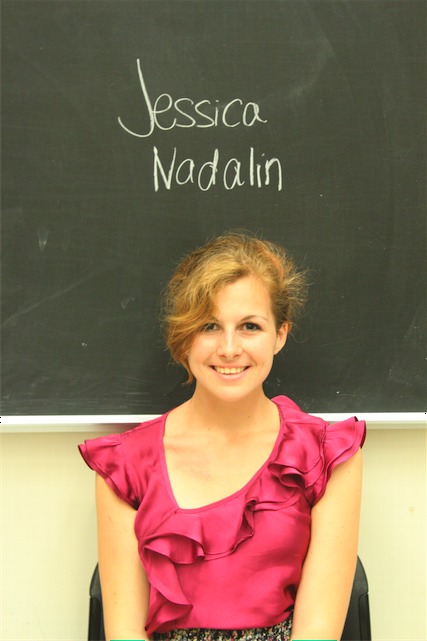 Jessica
Nadalin